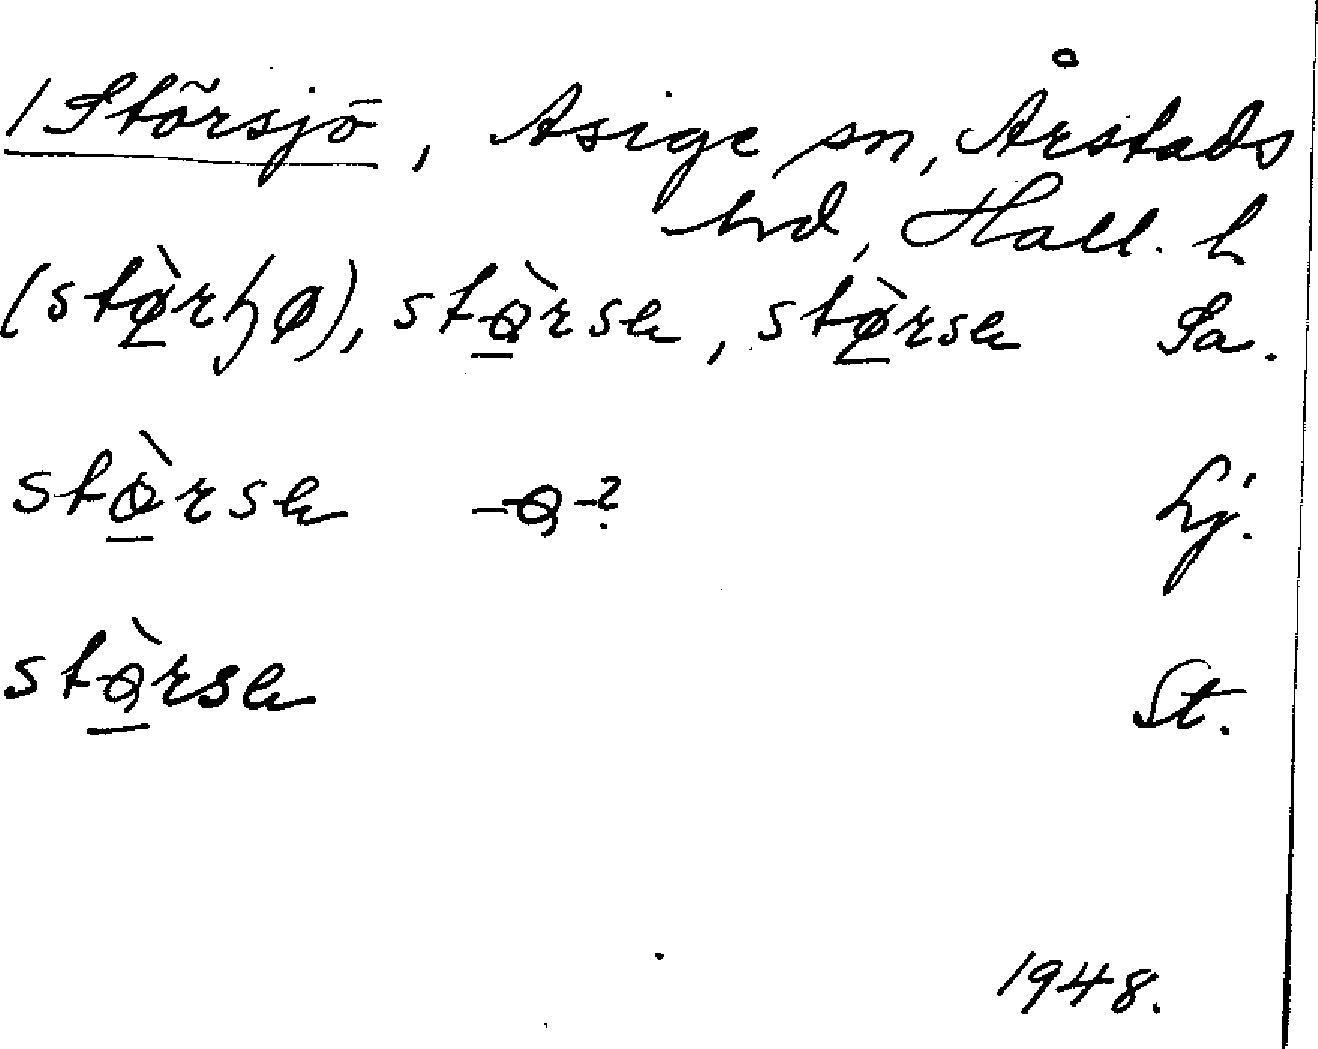 1 Störsjö, Asige sn, Årstads
hd, Hall. l
(stø̀rɧø), stɵ̀rsɐ, stø̀rsɐ Sa.
stɵ̀rsɐ -ɵ-? Lj.
stɵ̀rsɐ St.
1948.